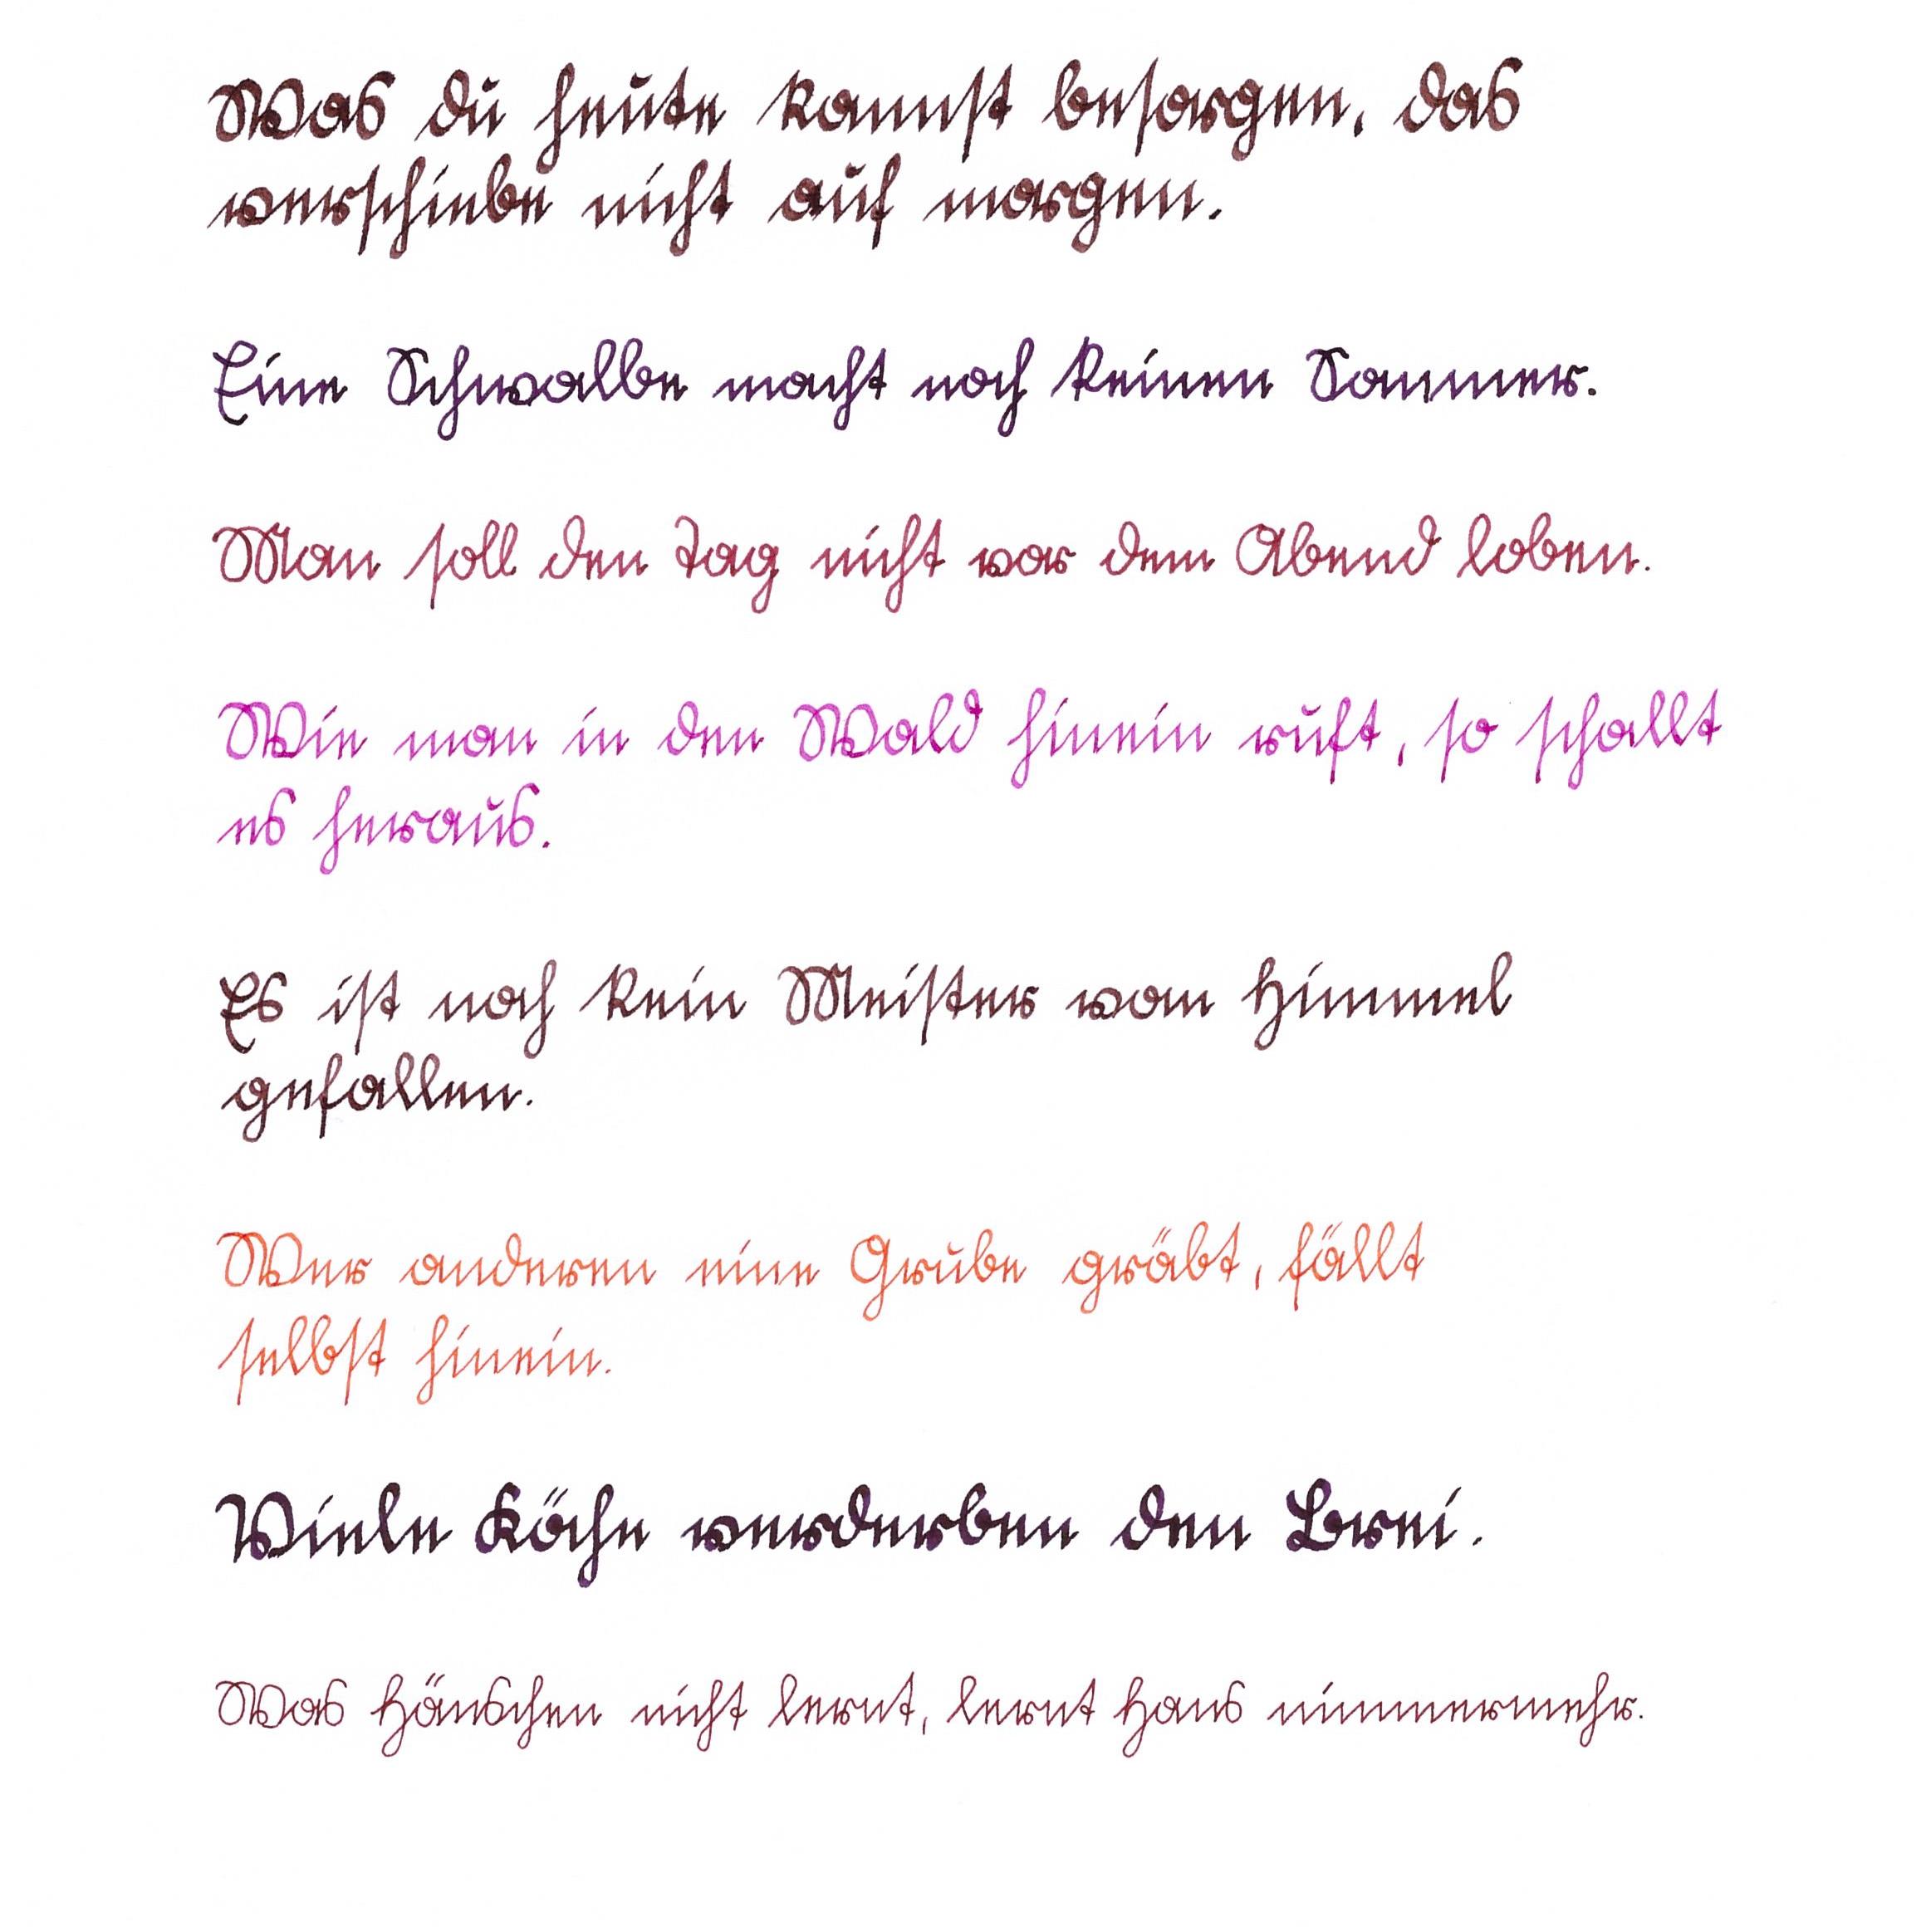 Was du heute kannst besorgen, das
verschiebe nicht auf morgen.
Eine Schwalbe macht noch keinen Sommer.
Man soll den Tag nicht vor dem Abend loben.
Wie man in den Wald hinein ruft, so schallt
es heraus.
Es ist noch kein Meister vom Himmel
gefallen.
Wer anderen eine Grube gräbt, fällt
selbst hinein.
Viele Köche verderben den Brei.
Was Hänschen nicht lernt, lernt Hans nimmermehr.